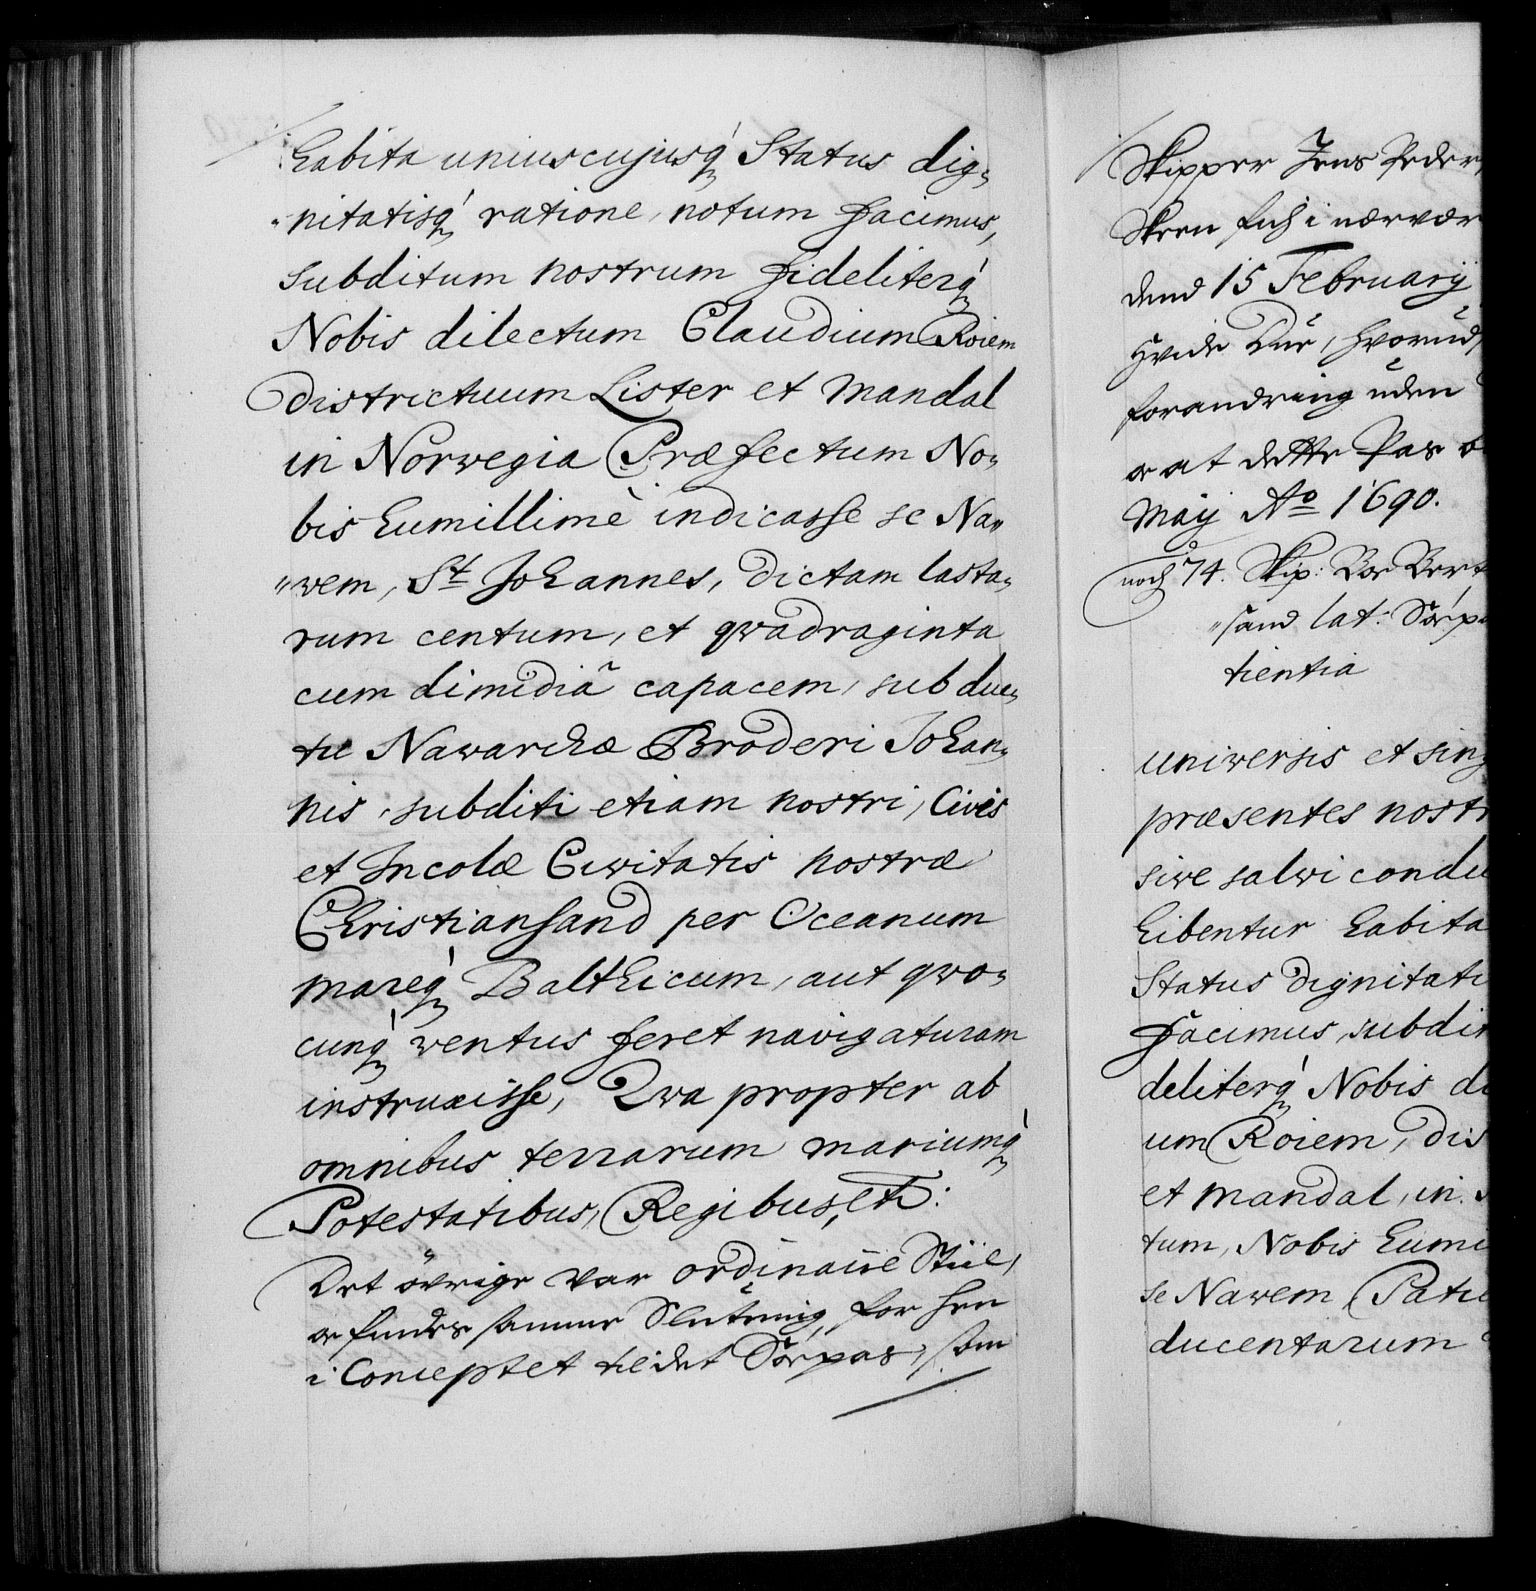 habita uniuscujusq́ Status dig„
„nitatisq́ ratione, notum facimus,
subditum nostrum fideliterq́
Nobis dilectum Claudium Roiem
Districtuum Lister et Mandal
in Norwegia Præfectum No„
bis humillimè indicasse se Na„
„wem, St Johannes, dictam lasta„
rum centum, et qwadraginta
cum dimidiâ capacem, sub duc„
tu Nawarchæ Broderi Johan„
nis, subditi etiam nostri, Civis
et Incolæ Civitatis nostræ
Christiansand per Oceanum
mareq́ Balthicum, aut qwo„
cunq́ ventus feret navigaturam
instruxisse, Qwa propter ab
omnibus terrarum mariumq́
Potestatibus, Regibus, etc:
Det övrige var ordinaire Stiil,
oc findes samme Slutning, for hen
i Conceptet til det Söepas, som
Skipper Jens Peder
Skeen fich i nærvær
dend 15 February
Hvide Due, hvorud
forandring uden
oc at dette Pas
Maÿ Ao 1690.
noch 74. Skip: Boe Bert
„sand lat: Söepa
tientia
universis et sing
præsentes nostr
sive salvi condu
hibentur habita
Status dignitati
facimus, subdit
deliterq́ Nobis di
um Roiem, Dis
et Mandal, in
tum, Nobis humi
se Navem Patie
ducentarum